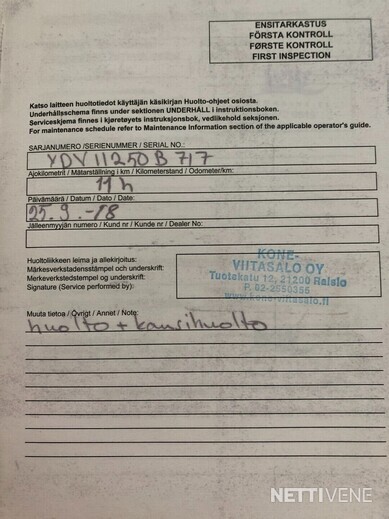 ENSITARKASTUS
FÖRSTA KONTROLL
FØRSTE KONTROLL
FIRST INSPECTION
Katso laitteen huoltotiedot käyttäjän käsikirjan Huolto-ohjeet osiosta.
Underhållsschema finns under sektionen UNDERHÅLL i instruktionsboken.
Serviceskjema finnes i kjøretøyets instruksjonsbok, vedlikehold seksjonen.
For maintenance schedule refer to Maintenance Information section of the applicable operator's guide.
SARJANUMERO /SERIENUMMER / SERIAL NO.:
YDV11250B717
Ajokilometrit / Mätarställning i km / Kilometerstand / Odometer/km:
11h
Päivämäärä / Datum / Dato / Date:
25.9.-18
Jälleenmyyjän numero / Kund nr / Kunde nr / Dealer No:
Huoltoliikkeen leima ja allekirjoitus:
Märkesverkstadensstämpel och underskrift:
Merkeverkstedstempel og underskrift:
Signature (Service performed by):
KONE-
VIITASALO OY
Tuotekatu 12, 21200 Raisio
P. 02-2550355
www.kone-viitasalo.fi
Muuta tietoa / Övrigt / Annet / Note:
huolto + kausihuolto
NETTIVENE